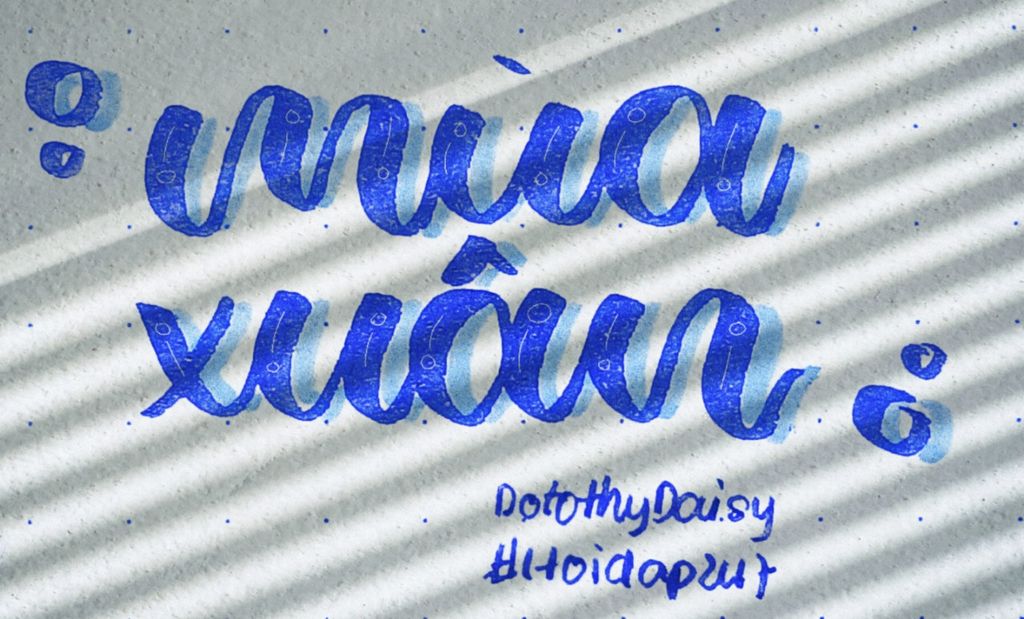 mùa
xuân
DorothyDaisy
#Hoidap247